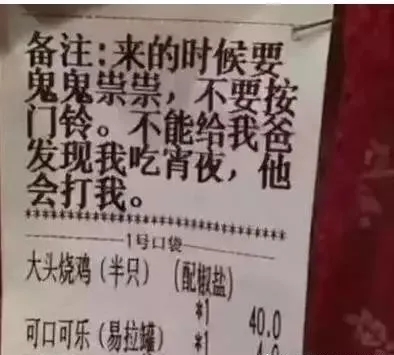 备注:来的时候要
鬼鬼祟祟，不要按
门铃。不能给我爸
发现我吃宵夜，他
会打我。
********************************
1号口袋
大头烧鸡（半只）（配椒盐）
*1 40.0
可口可乐（易拉罐）
*1